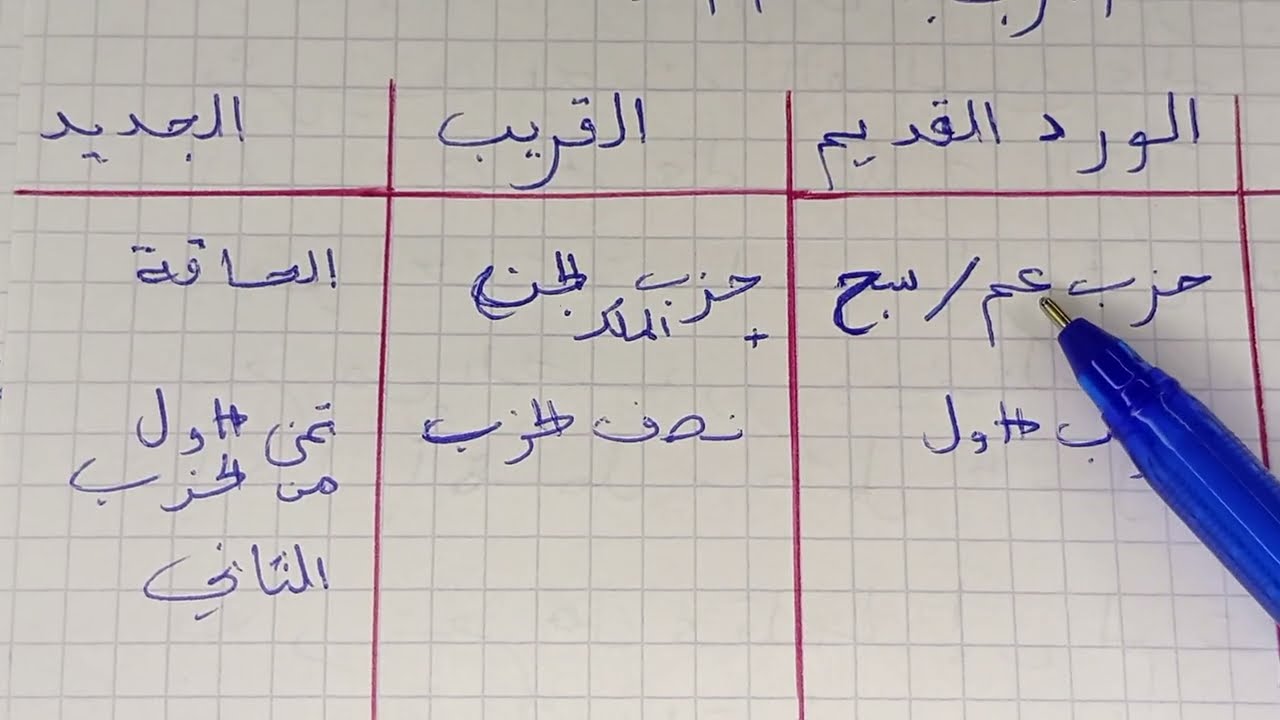 الورد القديم
القريب
الجديد
حزب عم / سبح
حزب الجن
+ الملك
الحاقة
الاول
نصف الحزب
ثمن الاول
من الحزب
الثاني